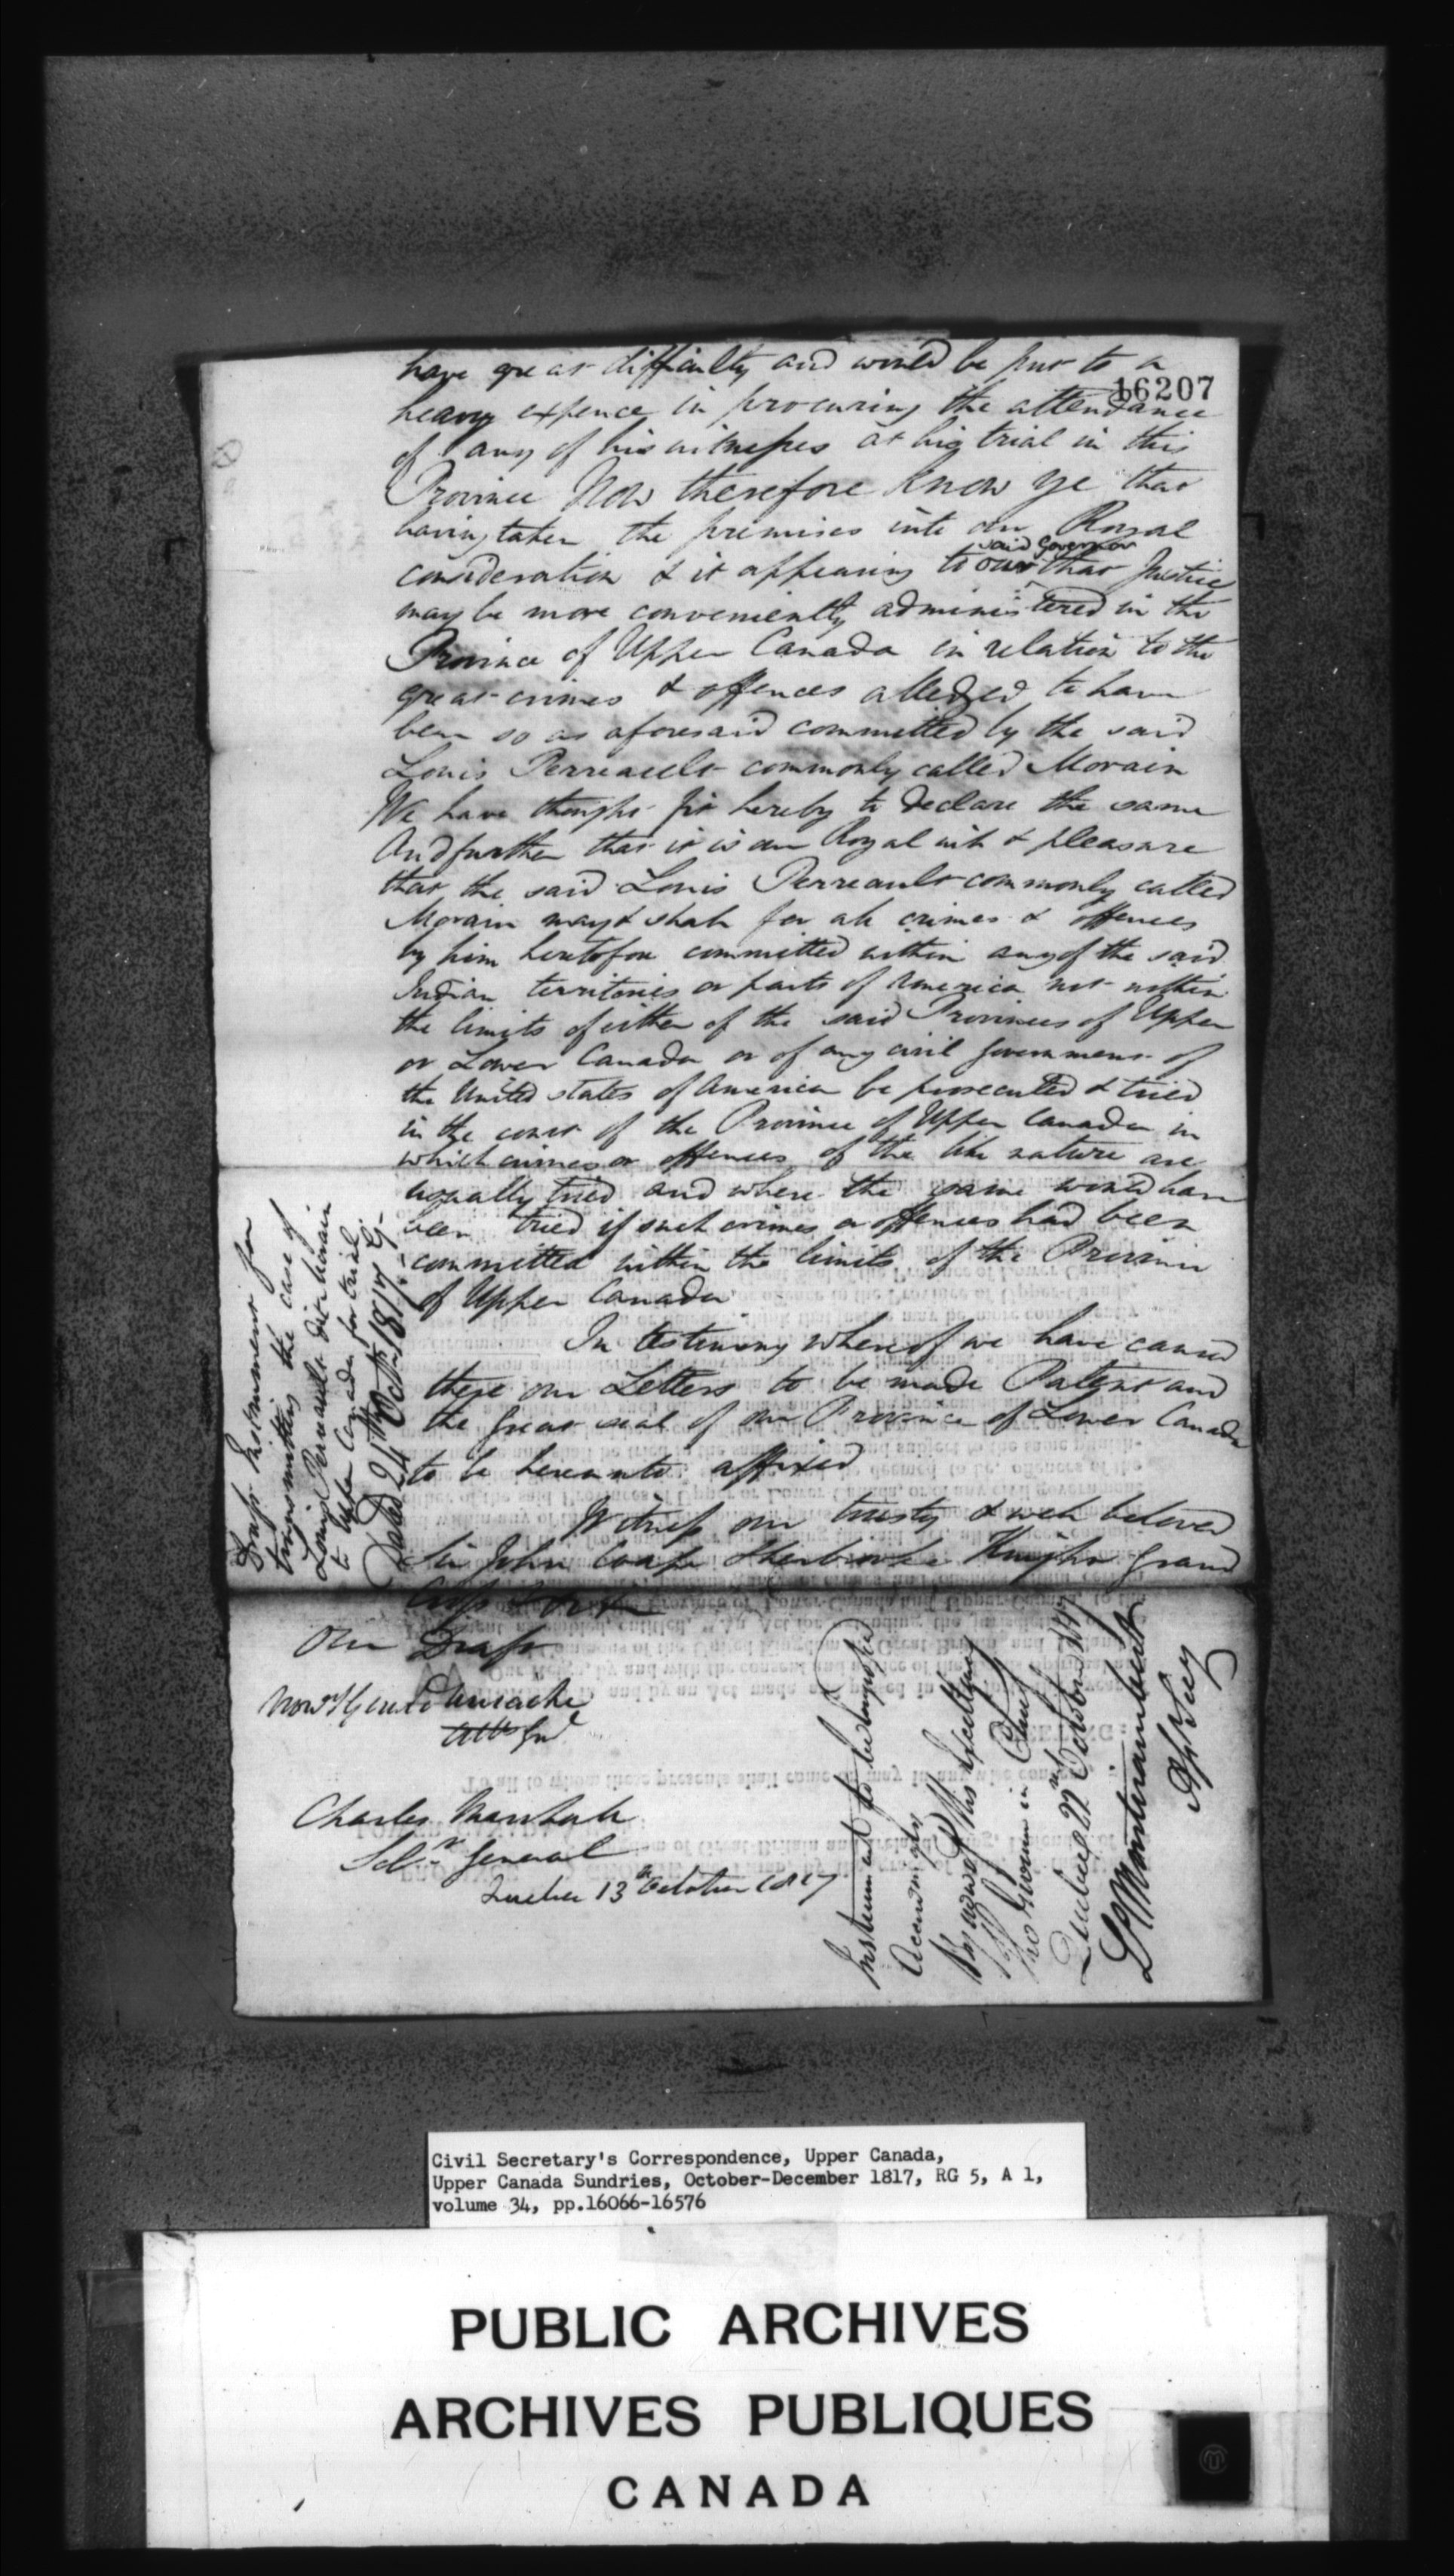 have great difficulty and would be put to a
16207
heavy expence in procuring the attendance
of any of his witnesses at his trial in this
Province Now therefore Know ye that
having taken the premises into our Royal
said Governor
consideration & it appearing to our that Justice
may be more conveniently administered in the
Province of Upper Canada in relation to the
great crimes & offences alledged to have
been so as aforesaid committed by the said
Louis Perreault commonly called Morain
We have thought fit hereby to declare the same
And further that it is our Royal will & pleasure
that the said Louis Perreault commonly called
Morain may & shall for all crimes & offences
by him heretofore committed within any of the said
Indian territories or parts of America not within
the limits of either of the said Provinces of Upper
or Lower Canada or of any civil government of
the United States of America be prosecuted & tried
in the court of the Province of Upper Canada in
which crimes or offences of the like nature are
usually tried and where the same would have
been tried if such crimes or offences had been
committed within the limits of the Province
of Upper Canada
In testimony whereof we have caused
these our Letters to be made Patent and
the great seal of our Province of Lower Canada
to be hereunto affixed
Witness our trusty & well beloved
Sir John Coape Sherbrooke Knight Grand
Cross
Our Draft
Uniacke
Att Gnl
Charles Marshall
Solr General
Quebec 13th October 1817
Draft Instrument for
transmitting the case of
Louis Perrault dit Morain
to Upper Canada for trial
Dated 24th Octr 1817
Instrument to be Engrossed
Accordingly
By order of His Excellency
The Governor in Chief
Quebec 22nd October 1817
Ls Montizambert
Civil Secretary's Correspondence, Upper Canada,
Upper Canada Sundries, October-December 1817, RG 5, A 1,
volume 34, pp.16066-16576
PUBLIC ARCHIVES
ARCHIVES PUBLIQUES
CANADA